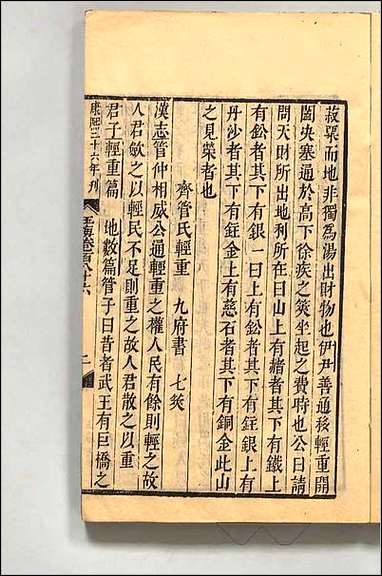 菽粟而地非獨為湯出財物也伊尹善通移輕重開
闔決塞通於高下徐疾之筴坐起之費時也公曰請
問天財所出地利所在曰山上有赭者其下有鐵上
有鈆者其下有銀一曰上有鈆者其下有鉒銀上有
丹沙者其下有鉒金上有慈石者其下有銅金此山
之見榮者也
齊管氏輕重 九府書 七筴
漢志管仲相威公通輕重之權人民有餘則輕之故
人君歛之以輕民不足則重之故人君散之以重
君子輕重篇 地數篇管子曰昔者武王有巨橋之
康熙三十六年刊
玉海卷百八十六
二